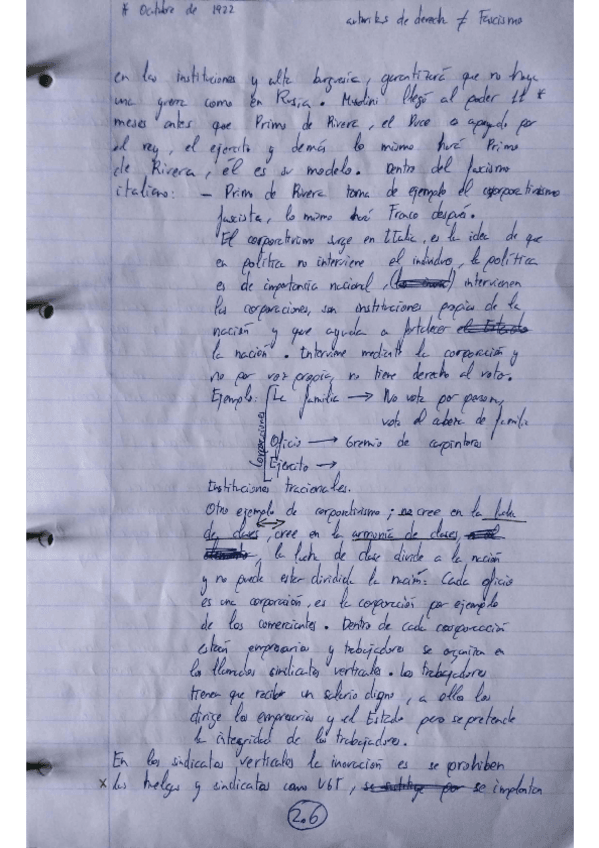 * Octubre de 1922
autorita de derech ≠ Fascismo
en las instituciones y alta burguesía, garantizará que no haya
una guerra como en Rusia. Musolini llegó al poder 11 *
meses antes que Primo de Rivera, el Duce a apoyado por
el rey, el ejercito y demás lo mismo hará Primo
de Rivera, él es su modelo. Dentro del fascismo
italiano: – Primo de Rivera toma de ejemplo el corporativismo
fascista, lo mismo hará Franco después.
El corporativismo surge en Italia, es la idea de que
en política no interviene el individuo, la política
es de importancia nacional, intervienen
las corporaciones, son instituciones propias de la
nación y que ayuda a fortalecer el Estado
la nación. Interviene mediante la corporación y
no por voz propia, no tiene derecho al voto.
Ejemplo: La familia → No vota por persona,
vota el cabeza de familia
Corporaciones
Oficio → Gremio de carpinteros
Ejercito →
Instituciones tracionales.
Otro ejemplo de corporativismo; se cree en la lucha
de clases, cree en la armonía de clases,
, la lucha de clase divide a la nación
y no puede estar dividida la nación. Cada oficio
es una corporación, es la corporación por ejemplo
de los comerciantes. Dentro de cada coorporación
están empresarios y trabajadores se organiza en
los llamados sindicatos verticales. Los trabajadores
tienen que recibir un salario digno, a ellos los
dirige los empresarios y el Estado pero se pretende
la integridad de los trabajadores.
En los sindicatos verticales la inovación es se prohiben
x las huelgas y sindicatos como UGT, se implantan
2.6